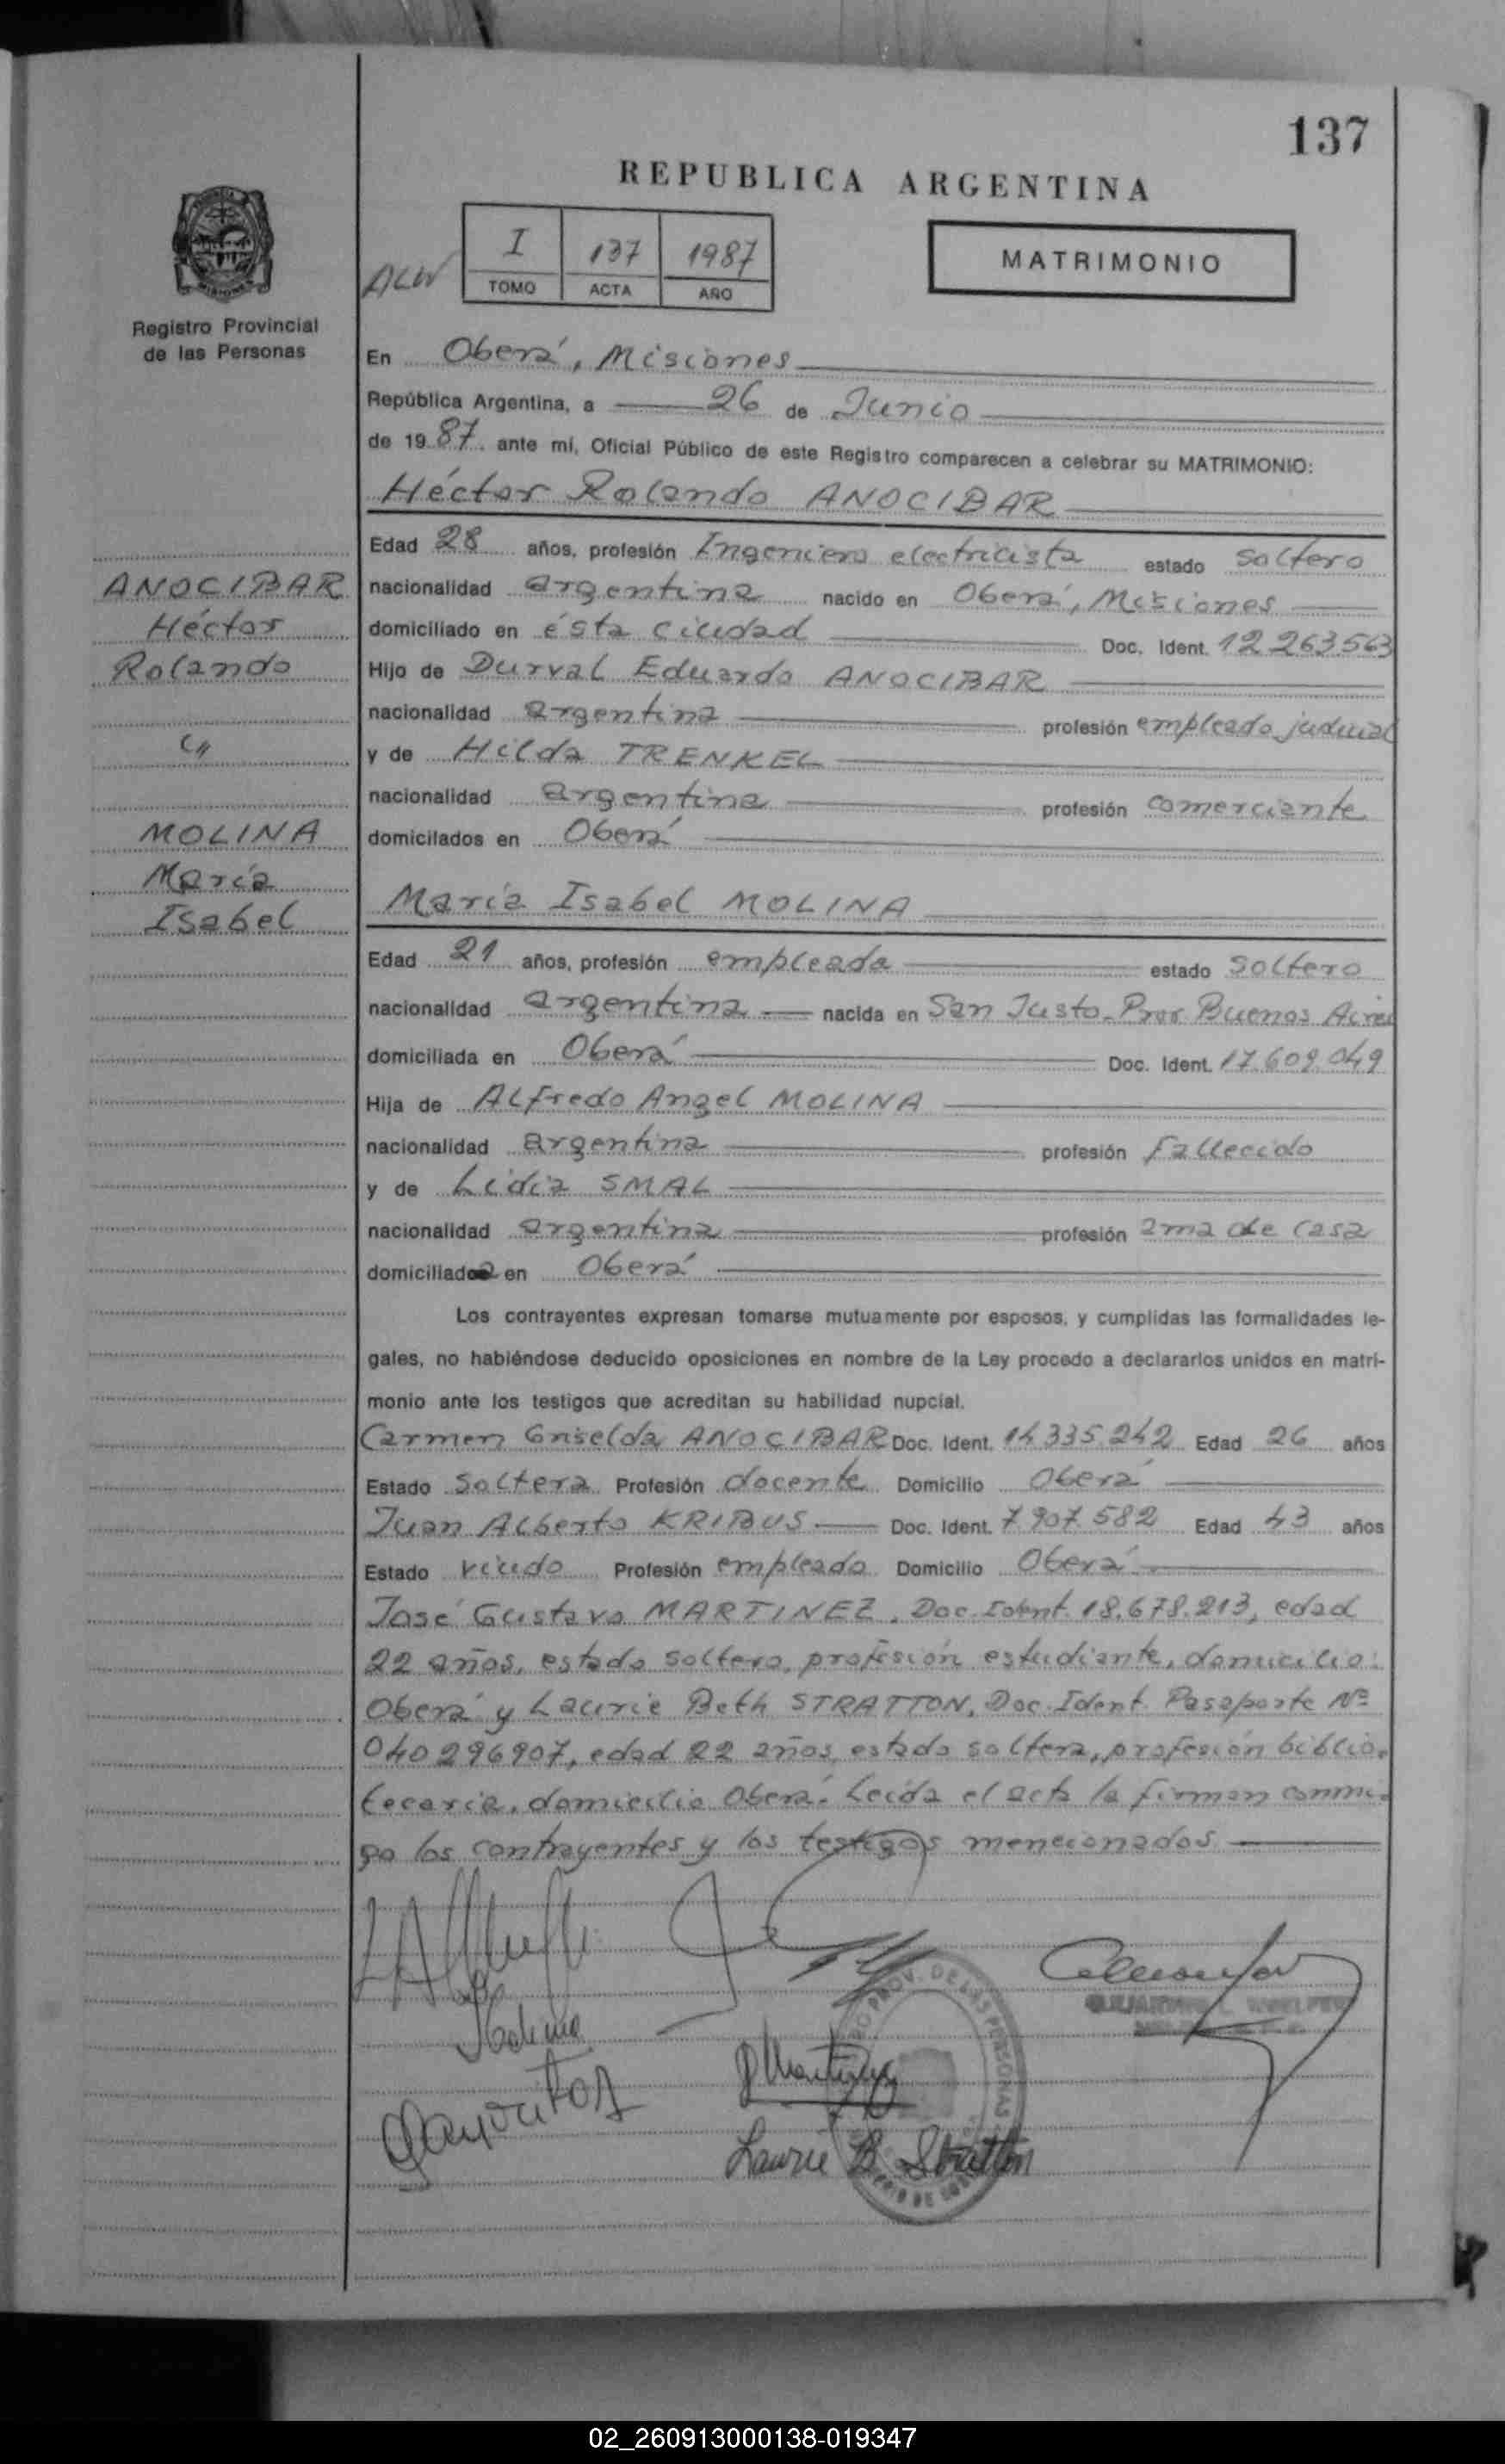 137
REPUBLICA ARGENTINA
I 137 1987
TOMO ACTA AÑO
MATRIMONIO
Registro Provincial
de las Personas
En Oberá, Misiones
República Argentina, a 26 de Junio
de 1987. ante mí, Oficial Público de este Registro comparecen a celebrar su MATRIMONIO:
Héctor Rolando ANOCIBAR
Edad 28 años, profesión Ingeniero electricista estado soltero
ANOCIBAR
Héctor
Rolando
c//
MOLINA
María
Isabel
nacionalidad argentina nacido en Oberá, Misiones
domiciliado en ésta ciudad Doc. Ident. 12 263.563
Hijo de Durval Eduardo ANOCIBAR
nacionalidad argentina profesión empleado judicial
y de Hilda TRENKEL
nacionalidad argentina profesión comerciante
domicilados en Oberá
María Isabel MOLINA
Edad 21 años, profesión empleada estado soltero
nacionalidad argentina nacida en San Justo-Prov Buenos Aires
domiciliada en Oberá Doc. Ident. 17.609.049
Hija de Alfredo Angel MOLINA
nacionalidad argentina profesión Fallecido
y de Lidia SMAL
nacionalidad argentina profesión ama de casa
domiciliada en Oberá
Los contrayentes expresan tomarse mutuamente por esposos, y cumplidas las formalidades le-
gales, no habiéndose deducido oposiciones en nombre de la Ley procedo a declararlos unidos en matri-
monio ante los testigos que acreditan su habilidad nupcial.
Carmen Griselda ANOCIBAR Doc. Ident. 14.335.242 Edad 26 años
Estado soltera Profesión docente Domicilio Oberá
Juan Alberto KRIBUS Doc. Ident. 7.907.582 Edad 43 años
Estado viudo Profesión empleado Domicilio Oberá
José Gustavo MARTINEZ, Doc. Ident. 18.678.213, edad
22 años, estado soltero, profesión estudiante, domicilio:
Oberá y Laurie Beth STRATTON, Doc. Ident. Pasaporte Nº
040296907, edad 22 años, estado soltera, profesión biblio-
tecaria, domicilio Oberá. Leida el acta la firman conmi-
go los contrayentes y los testigos mencionados
Molina
Laurie B Stratton
02_260913000138-019347